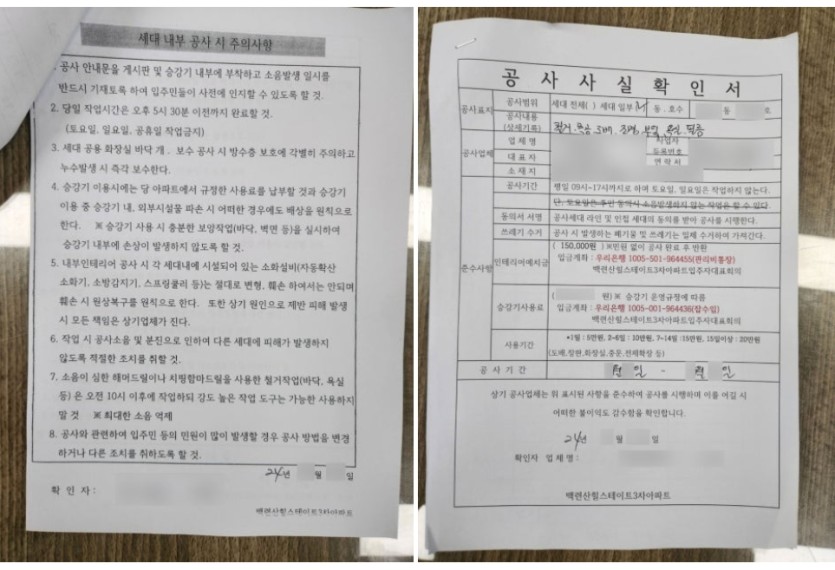 세대 내부 공사 시 주의사항
1. 공사 안내문을 게시판 및 승강기 내부에 부착하고 소음발생 일시를
반드시 기재토록 하여 입주민들이 사전에 인지할 수 있도록 할 것.
2. 당일 작업시간은 오후 5시 30분 이전까지 완료할 것.
(토요일, 일요일, 공휴일 작업금지)
3. 세대 공용 화장실 바닥 개 . 보수 공사 시 방수층 보호에 각별히 주의하고
누수발생 시 즉각 보수한다.
4. 승강기 이용시에는 당 아파트에서 규정한 사용료를 납부할 것과 승강기
이용 중 승강기 내, 외부시설물 파손 시 어떠한 경우에도 배상을 원칙으로
한다. ※ 승강기 사용 시 충분한 보양작업(바닥, 벽면 등)을 실시하여
승강기 내부에 손상이 발생하지 않도록 할 것.
5. 내부인테리어 공사 시 각 세대내에 시설되어 있는 소화설비(자동확산
소화기, 소방감지기, 스프링쿨러 등)는 절대로 변형, 훼손 하여서는 안되며
훼손 시 원상복구를 원칙으로 한다. 또한 상기 원인으로 제반 피해 발생
시 모든 책임은 상기업체가 진다.
6. 작업 시 공사소음 및 분진으로 인하여 다른 세대에 피해가 발생하지
않도록 적절한 조치를 취할 것.
7. 소음이 심한 해머드릴이나 치핑함마드릴을 사용한 철거작업(바닥, 욕실
등) 은 오전 10시 이후에 작업하되 강도 높은 작업 도구는 가능한 사용하지
말 것 ※ 최대한 소음 억제
8. 공사와 관련하여 입주민 등의 민원이 많이 발생할 경우 공사 방법을 변경
하거나 다른 조치를 취하도록 할 것.
24년 월 일
확 인 자 :
백련산힐스테이트3차아파트
공 사 사 실 확 인 서
공사표지
공사범위 세대 전체( ) 세대 일부( ) 동 . 호수 동 호
공사내용
(상세기록) 철거, 목공, 도배,
공사업체
업 체 명 사업자
등록번호
대 표 자 연 락 처
소 재 지
준수사항
공사기간 평일 09시~17시까지로 하며 토요일, 일요일은 작업하지 않는다.
단, 토요일은 주민 동의시 소음발생하지 않는 작업은 할 수 있다
동의서 서명 공사세대 라인 및 인접 세대의 동의를 받아 공사를 시행한다.
쓰레기 수거 공사 시 발생하는 폐기물 및 쓰레기는 업체 수거하여 가져간다.
인테리어예치금 ( 150,000원 ) ※민원 없이 공사 완료 후 반환
입금계좌 : 우리은행 1005-501-964455(관리비통장)
백련산힐스테이트3차아파트입주자대표회의
승강기사용료 ( 원) ※ 승강기 운영규정에 따름
입금계좌 : 우리은행 1005-001-964436(잡수입)
백련산힐스테이트3차아파트입주자대표회의
사용기간 *1일 : 5만원, 2~6일 : 10만원, 7~14일 :15만원, 15일이상 : 20만원
(도배,장판,화장실,중문,전체확장 등)
공 사 기 간 월 일 ~ 월 일
상기 공사업체는 위 표시된 사항을 준수하여 공사를 시행하며 이를 어길 시
어떠한 불이익도 감수함을 확인합니다.
24년 월 일
확인자 업 체 명 :
백련산힐스테이트3차아파트